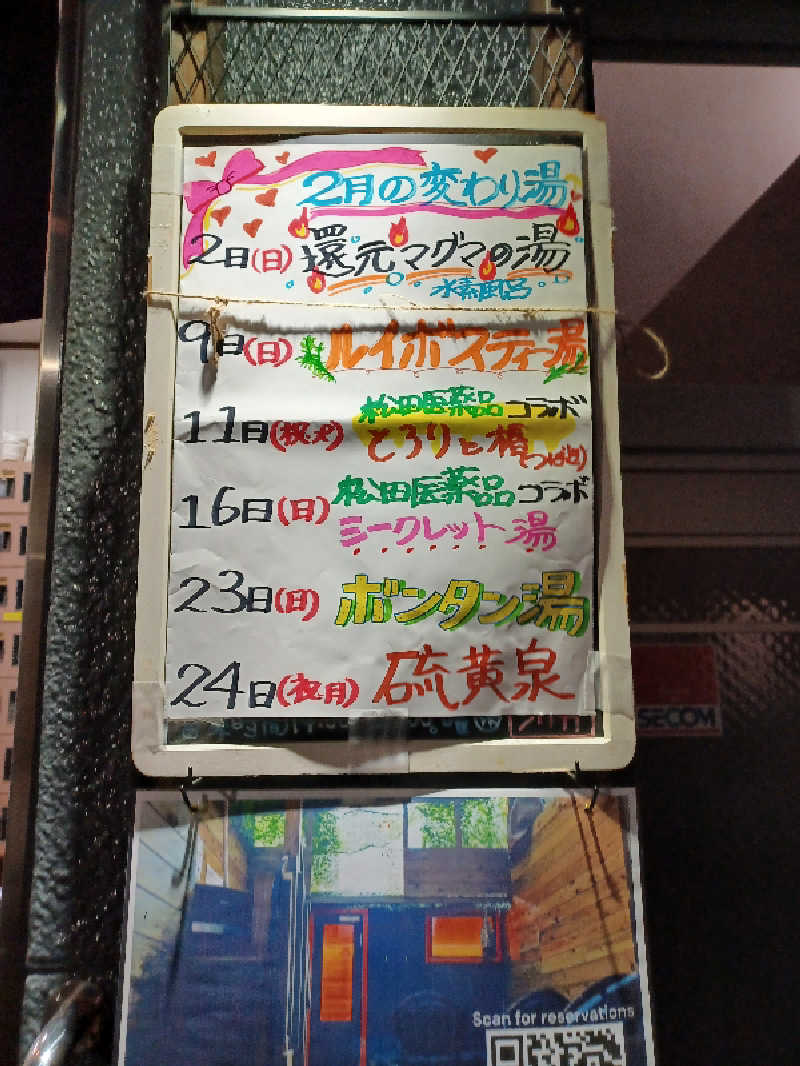 2月の変わり湯
2日(日) 還元マグマの湯
水素風呂
9日(日) ルイボスティー湯
11日(祝火) 松田医薬品コラボ
とろりと椿(つばき)
16日(日) 松田医薬品コラボ
シークレット湯
23日(日) ボンタン湯
24日(祝月) 硫黄泉
SECOM
Scan for reservations